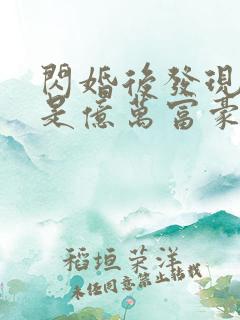 閃婚後發現
是億萬富豪
稻垣荣洋
未经同意禁止转载